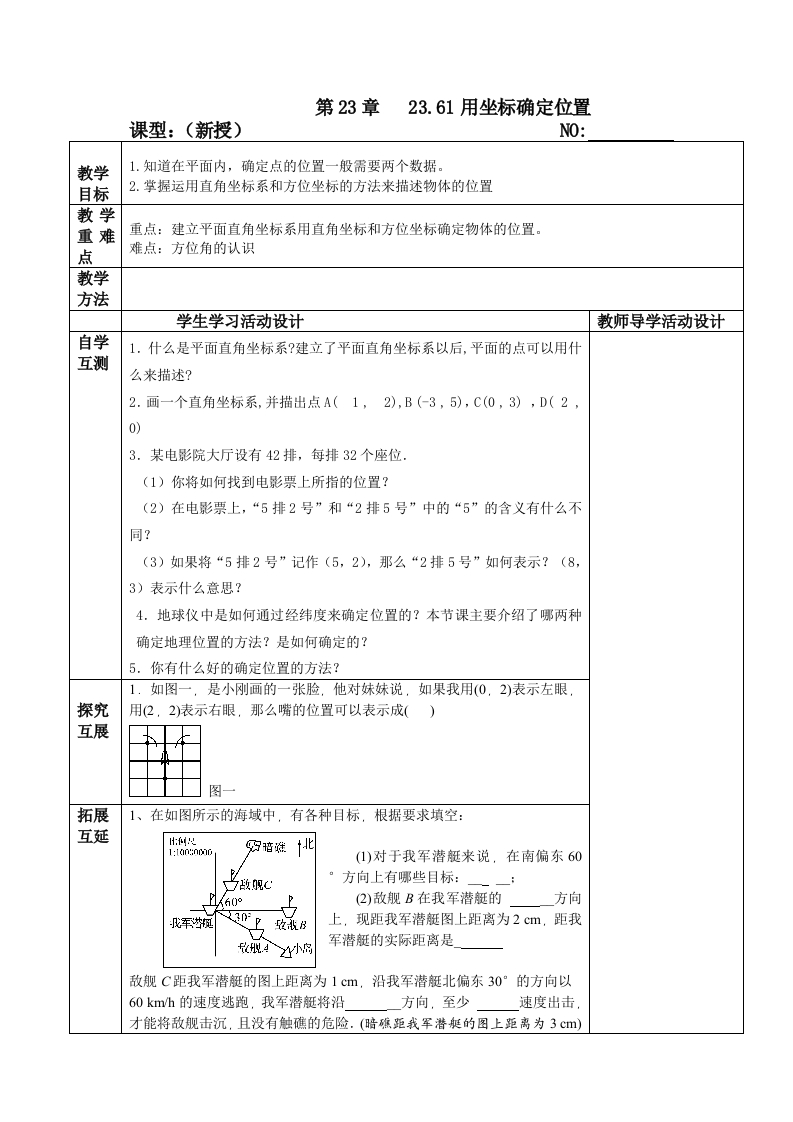 第 23 章 23.61 用坐标确定位置
课型：（新授） NO:
教学
目标
1.知道在平面内，确定点的位置一般需要两个数据。
2.掌握运用直角坐标系和方位坐标的方法来描述物体的位置
教 学
重 难
点
重点：建立平面直角坐标系用直角坐标和方位坐标确定物体的位置。
难点：方位角的认识
教学
方法
学生学习活动设计 教师导学活动设计
自学
互测
1．什么是平面直角坐标系?建立了平面直角坐标系以后,平面的点可以用什
么来描述?
2．画一个直角坐标系,并描出点 A( 1 , 2),B (-3 , 5)，C(0 , 3) ，D( 2 ,
0)
3．某电影院大厅设有 42 排，每排 32 个座位．
（1）你将如何找到电影票上所指的位置？
（2）在电影票上，“5 排 2 号”和“2 排 5 号”中的“5”的含义有什么不
同？
（3）如果将“5 排 2 号”记作（5，2），那么“2 排 5 号”如何表示？（8，
3）表示什么意思？
4．地球仪中是如何通过经纬度来确定位置的？本节课主要介绍了哪两种
确定地理位置的方法？是如何确定的？
5．你有什么好的确定位置的方法？
探究
互展
1．如图一，是小刚画的一张脸，他对妹妹说，如果我用(0，2)表示左眼，
用(2，2)表示右眼，那么嘴的位置可以表示成( )
图一
拓展
互延
1、在如图所示的海域中，有各种目标，根据要求填空：
比例尺
1:10000000
暗礁
北
敌舰C
60°
30°
我军潜艇
敌舰B
敌舰A
小岛
(1)对于我军潜艇来说，在南偏东 60
°方向上有哪些目标：__ __；
(2)敌舰 B 在我军潜艇的 ____方向
上，现距我军潜艇图上距离为 2 cm，距我
军潜艇的实际距离是______
敌舰 C 距我军潜艇的图上距离为 1 cm，沿我军潜艇北偏东 30°的方向以
60 km/h 的速度逃跑，我军潜艇将沿______方向，至少 ____速度出击，
才能将敌舰击沉，且没有触礁的危险．(暗礁距我军潜艇的图上距离为 3 cm)